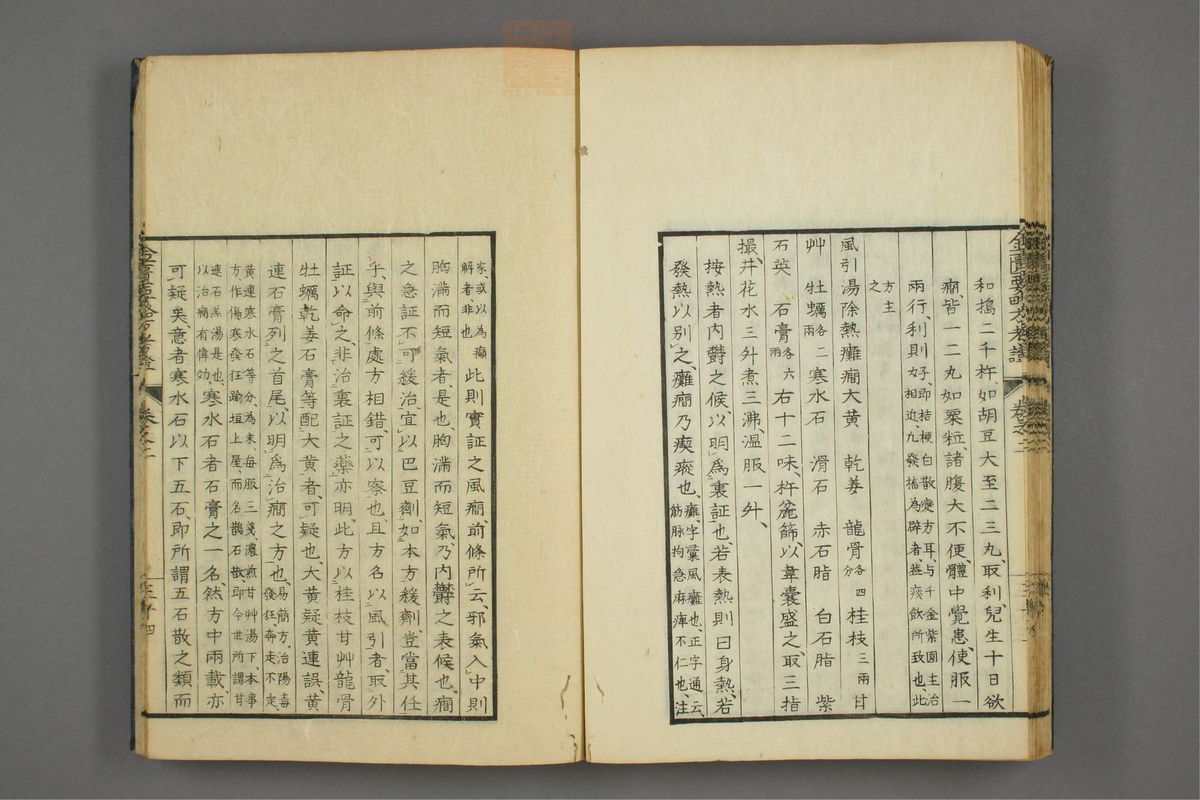 和搗二千杵如胡豆大至二三丸取利兒生十日欲
癇皆一二丸如粟粒諸腹大不便體中覺患使服一
兩行利則子即桔梗白散變方耳与千金紫圓主治
力相近九發搐為癖者蓋痰飲所致也此
方主
之
風引湯除熱癱癇大黄 乾姜 龍骨各四
分 桂枝三兩 甘
艸 牡蠣各二
兩 寒水石 滑石 赤石脂 白石脂 紫
石英 石膏各六
兩 右十二味杵麄篩以韋囊盛之取三指
撮井花水三升煮三沸温服一升、
按熱者内欝之候以明為裏証也若表熱則曰身熱若
發熱以別之癱癇乃瘈瘲也癱字彙風癱也正字通云
筋脉拘急麻痺不仁也注
家或以為癲
解者非也 此則實証之風癇前條所云邪氣入中則
胸滿而短氣者是也胸滿而短氣乃内欝之表候也癇
之急証不可緩治宜以巴豆劑如本方緩劑豈當其任
乎與前條處方相錯可以察也且方名以風引者取外
証以命之非治裏証之藥亦明此方以桂枝甘艸龍骨
牡蠣乾姜石膏等配大黄者可疑也大黄疑黄連誤黄
連石膏列之首尾以明為治癇之方也易簡方治陽毒
發狂奔走不定
黄連寒水石等分為末每服三箋濃煎甘艸湯下本事
方作傷寒發狂踰垣上屋而名鵲石散即今世所謂甘
連石羔湯是也
以治癇有傳効 寒水石者石膏之一名然方中兩載亦
可疑矣意者寒水石以下五石即所謂五石散之類而